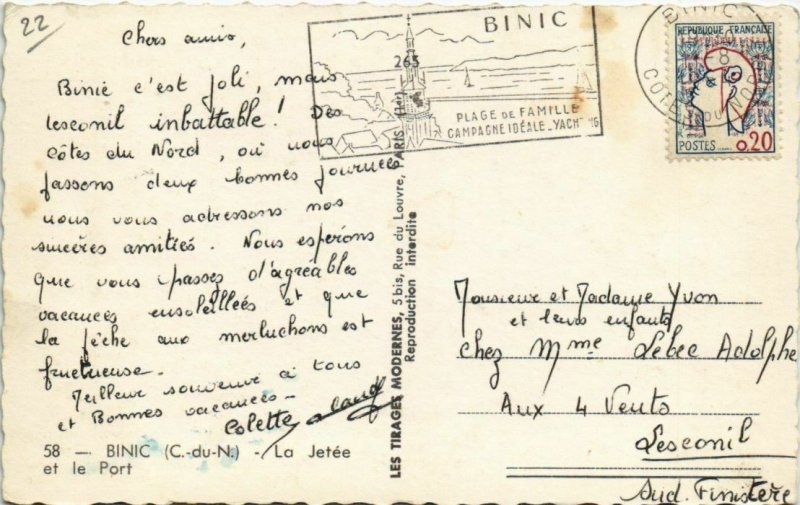 22
Chers amis,
Binic c'est joli, mais
Lesconil inbattable! Des
côtes du Nord, où nous
passons deux bonnes journées
nous vous adressons nos
sincères amitiés. Nous espérons
que vous passez d'agréables
vacances ensoleillées et que
la pêche aux merluchons est
fructueuse.
Meilleur souvenir à tous
et Bonnes vacances -
Colette
58 — BINIC (C.-du-N.) - La Jetée
et le Port
LES TIRAGES MODERNES, 5 bis, Rue du Louvre, PARIS (1er)
Reproduction interdite
265
BINIC
PLAGE DE FAMILLE
CAMPAGNE IDÉALE_YACH
BINIC
8
CÔTES DU NORD
RÉPUBLIQUE FRANÇAISE
POSTES 0,20
Monsieur et Madame Yvon
et leurs enfants
chez Mme Lebec Adolphe
Aux 4 Vents
Lesconil
Sud. Finistère